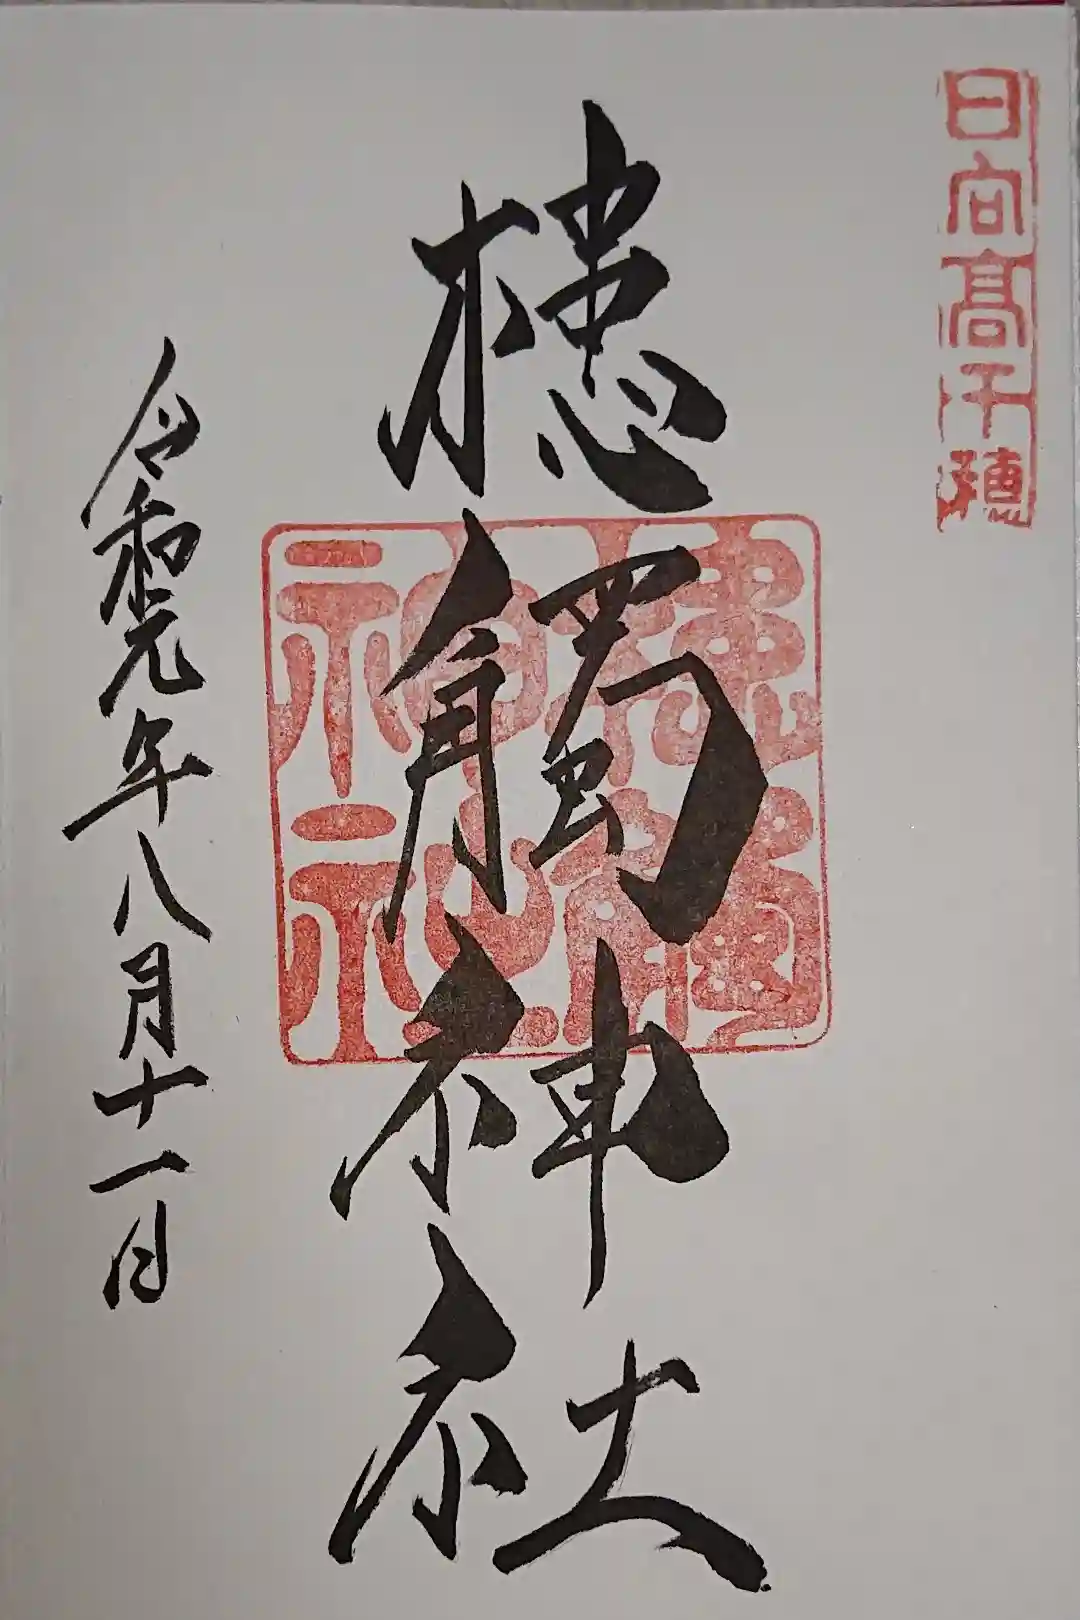 日向高千穂
槵觸神社
令和元年八月十一日
槵觸神社